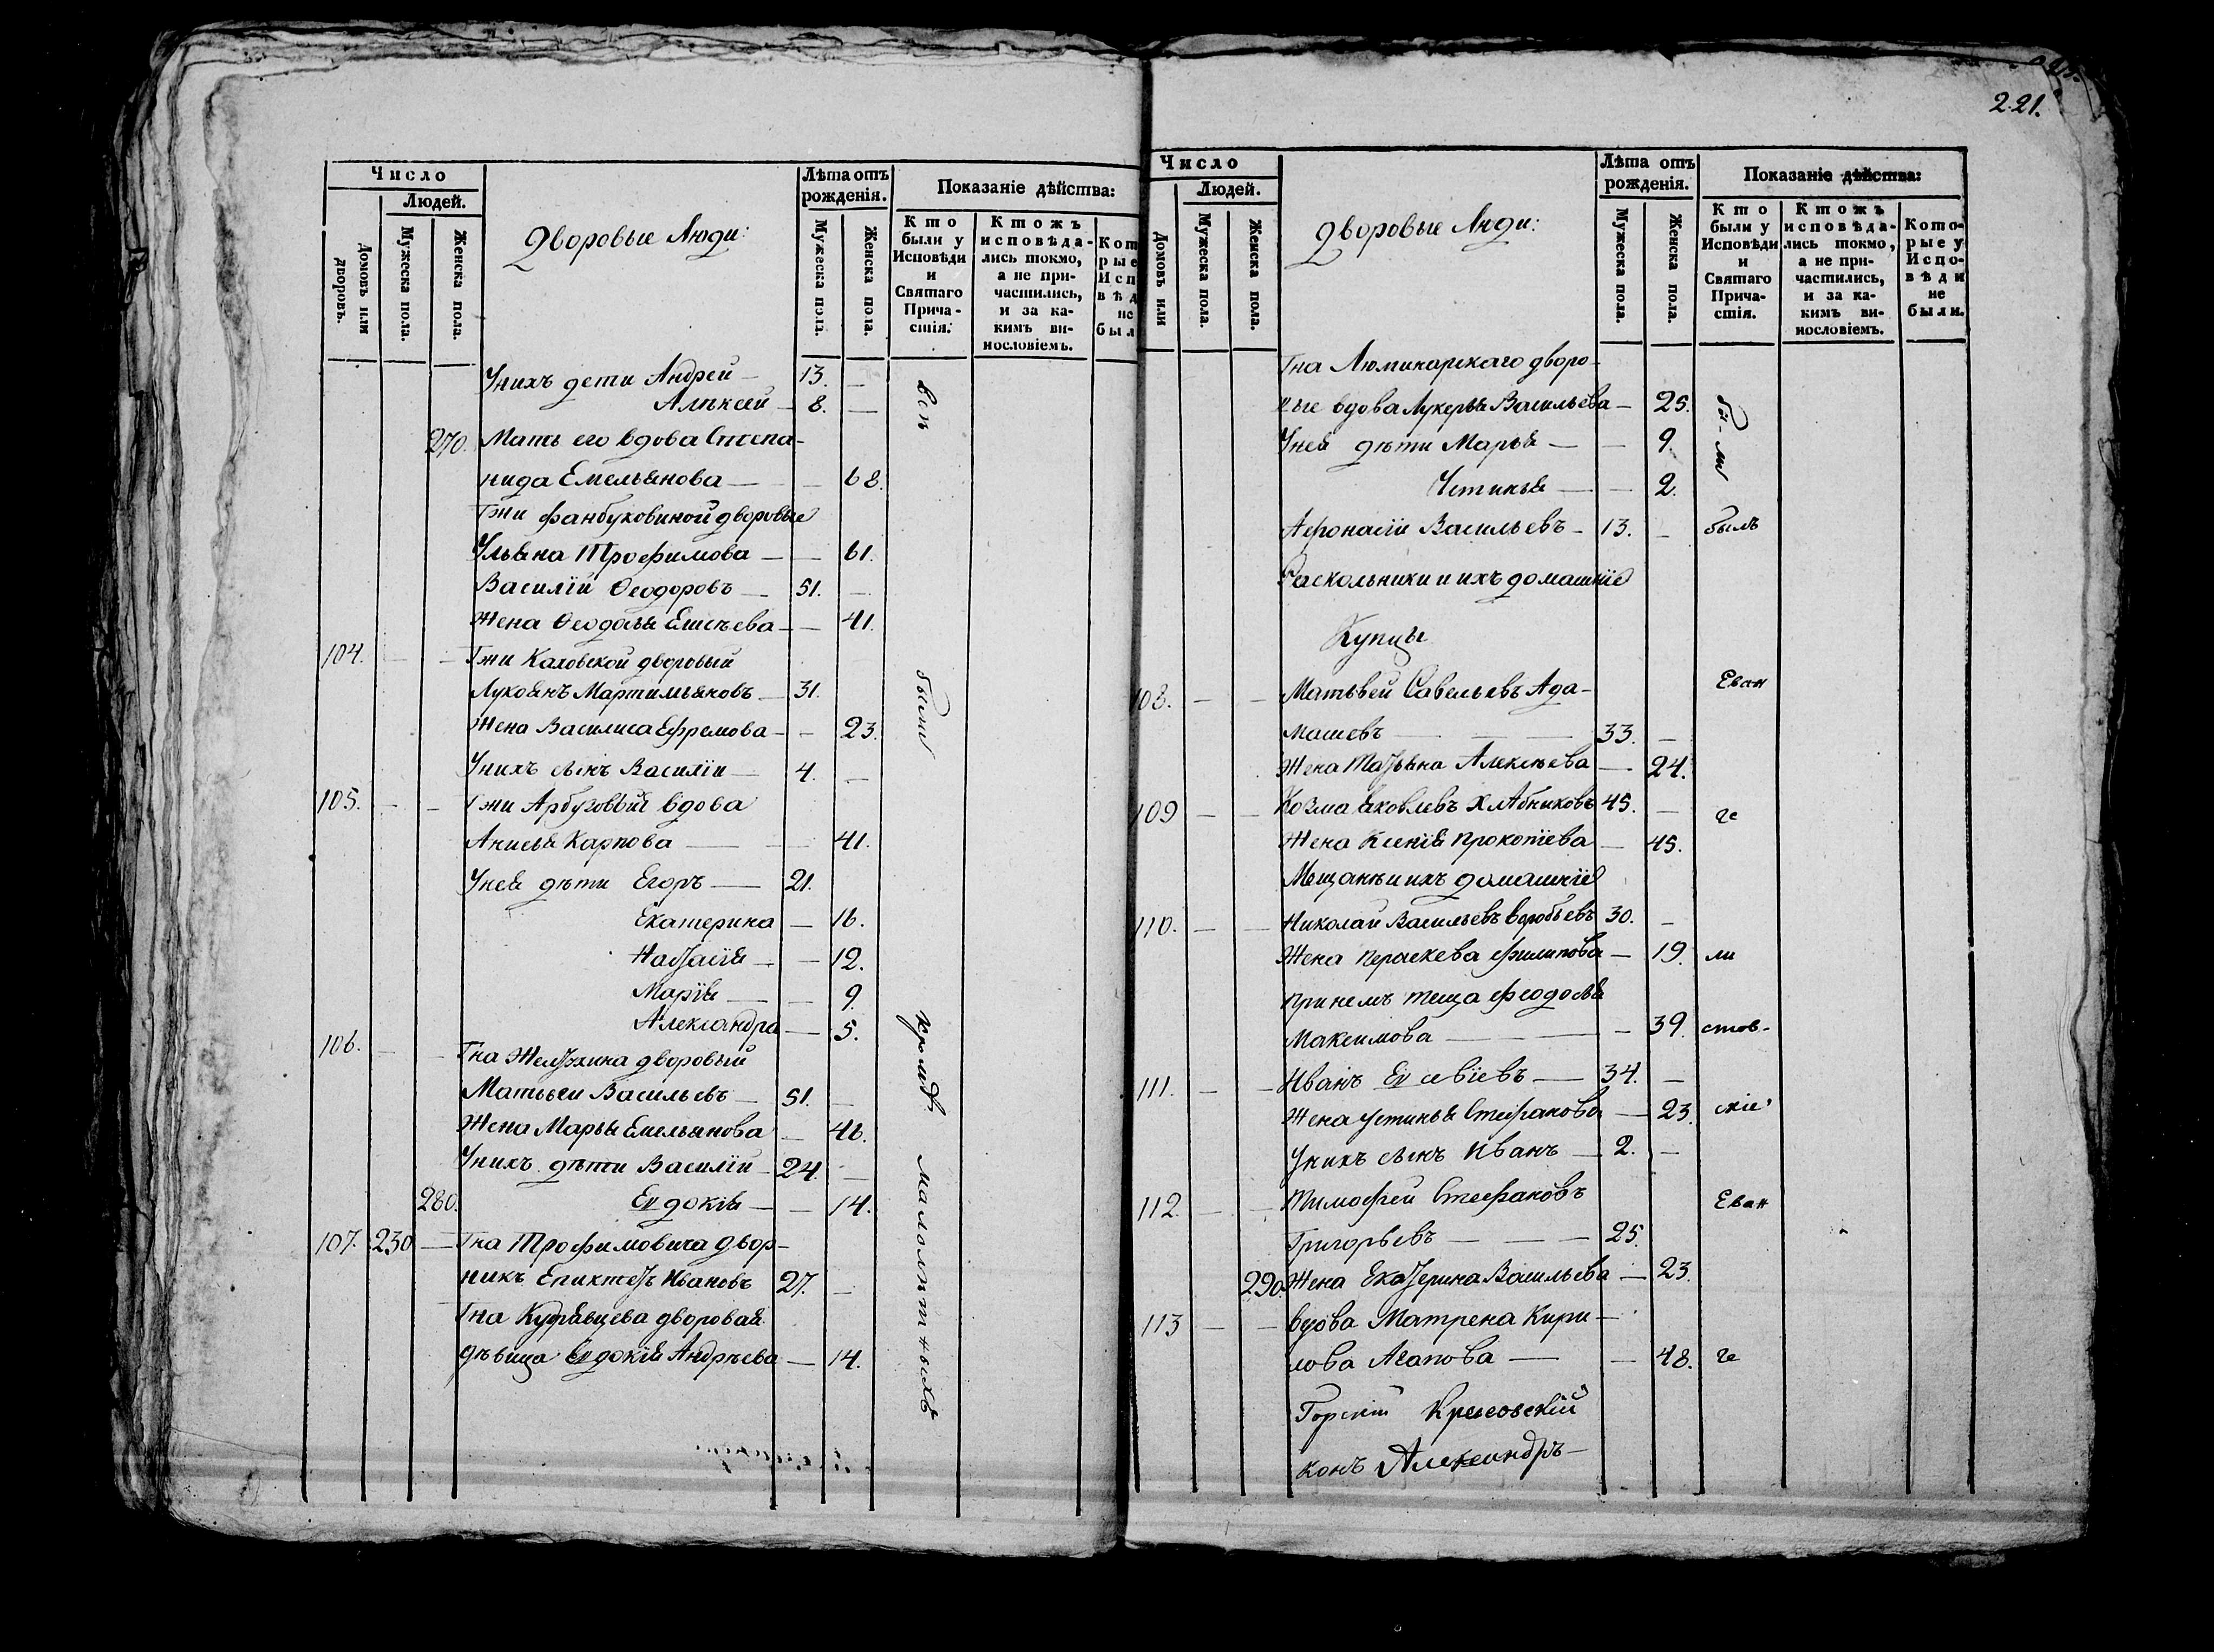 221.
Число
Людей.
Домовъ или дворовъ.
Мужеска пола.
Женска пола.
Дворовые Люди:
Лѣта отъ рожденія.
Мужеска пола.
Женска пола.
Показаніе дѣйства:
Кто были у Исповѣди и Святаго Прича-стія.
Ктожъ исповѣда-лись токмо, а не при-частились, и за ка-кимъ ви-нословіемъ.
Унихъ дети Андрей — 13. —
Алѣксѣй — 8. —
270. Мать его вдова Степа-
нида Емельянова — — 68.
Гжи Фанбуковиной дворовые
Ульяна Трофимова — — 61.
Василій Ѳеодоровъ — 51. —
Жена Ѳеодосья Елисѣева — — 41.
104. — — Гжи Каховской дворовый
Лукоянъ Мартимьяновъ — 31.
Жена Василиса Ефремова — — 23.
Унихъ сынъ Василіи — 4. —
105. — — Гжи Арбузовыя вдова
Анисья Карпова — — 41.
Унея дѣти Егоръ — 21.
Екатерина — 16.
Настасія — — 12.
Марія — — 9.
Александра — 5.
106. — — Гна Желтухина дворовый
Матьвеи Васильевъ — 51. —
Жена Марья Емельянова — 46.
Унихъ дѣти Василіи — 24. —
280. Евдокія — — 14.
107. 230 — Гна Трофимовича двор-
никъ Епиктетъ Ивановъ 27. —
Гна Кудрявцева дворовая
дѣвица Евдокія Андрѣева — 14.
всѣ
были
кромѣ
малолѣтныхъ
Число
Людей.
Домовъ или
Мужеска пола.
Женска пола.
Дворовые Люди:
Лѣта отъ рожденія.
Мужеска пола.
Женска пола.
Показаніе дѣйства:
Кто были у Исповѣди и Святаго Прича-стія.
Ктожъ исповѣда-лись токмо, а не при-частились, и за ка-кимъ ви-нословіемъ.
Кото-рые у Испо-вѣди не были.
Гна Люминарскаго дворо-
вые вдова Лукерья Васильева — 25.
Унея дѣти Марья — — 9.
Устинья — — 2.
бы-ли
Афонасіи Васильевъ — 13. — былъ
Раскольники и ихъ домашніе
Купцы
108. — — Матьвей Савельевъ Ада- Еван
машевъ — — — 33. —
Жена Татьяна Алексѣева — 24.
109 — — Козма Яковлевъ Хлѣбниковъ 45. — ге
Жена Ксенія Прокопіева — 45.
Мещанѣ и ихъ домашніе
110. — — Николай Васильевъ Воробьевъ 30. —
Жена Параскева Филипова — 19. ли
При немъ теща Феодосья
Максимова — — 39. стов-
111. — — Иванъ Евсевіевъ — 34. —
Жена Устинья Стефанова — 23. скіе
Унихъ сынъ Иванъ — 2. —
112. — — Тимофей Стефановъ Еван
Григорьевъ — — — 25.
290. Жена Екатерина Васильева — 23.
113 — — Вдова Матрена Кири-
лова Агапова — — 48. ге
конъ Александръ —